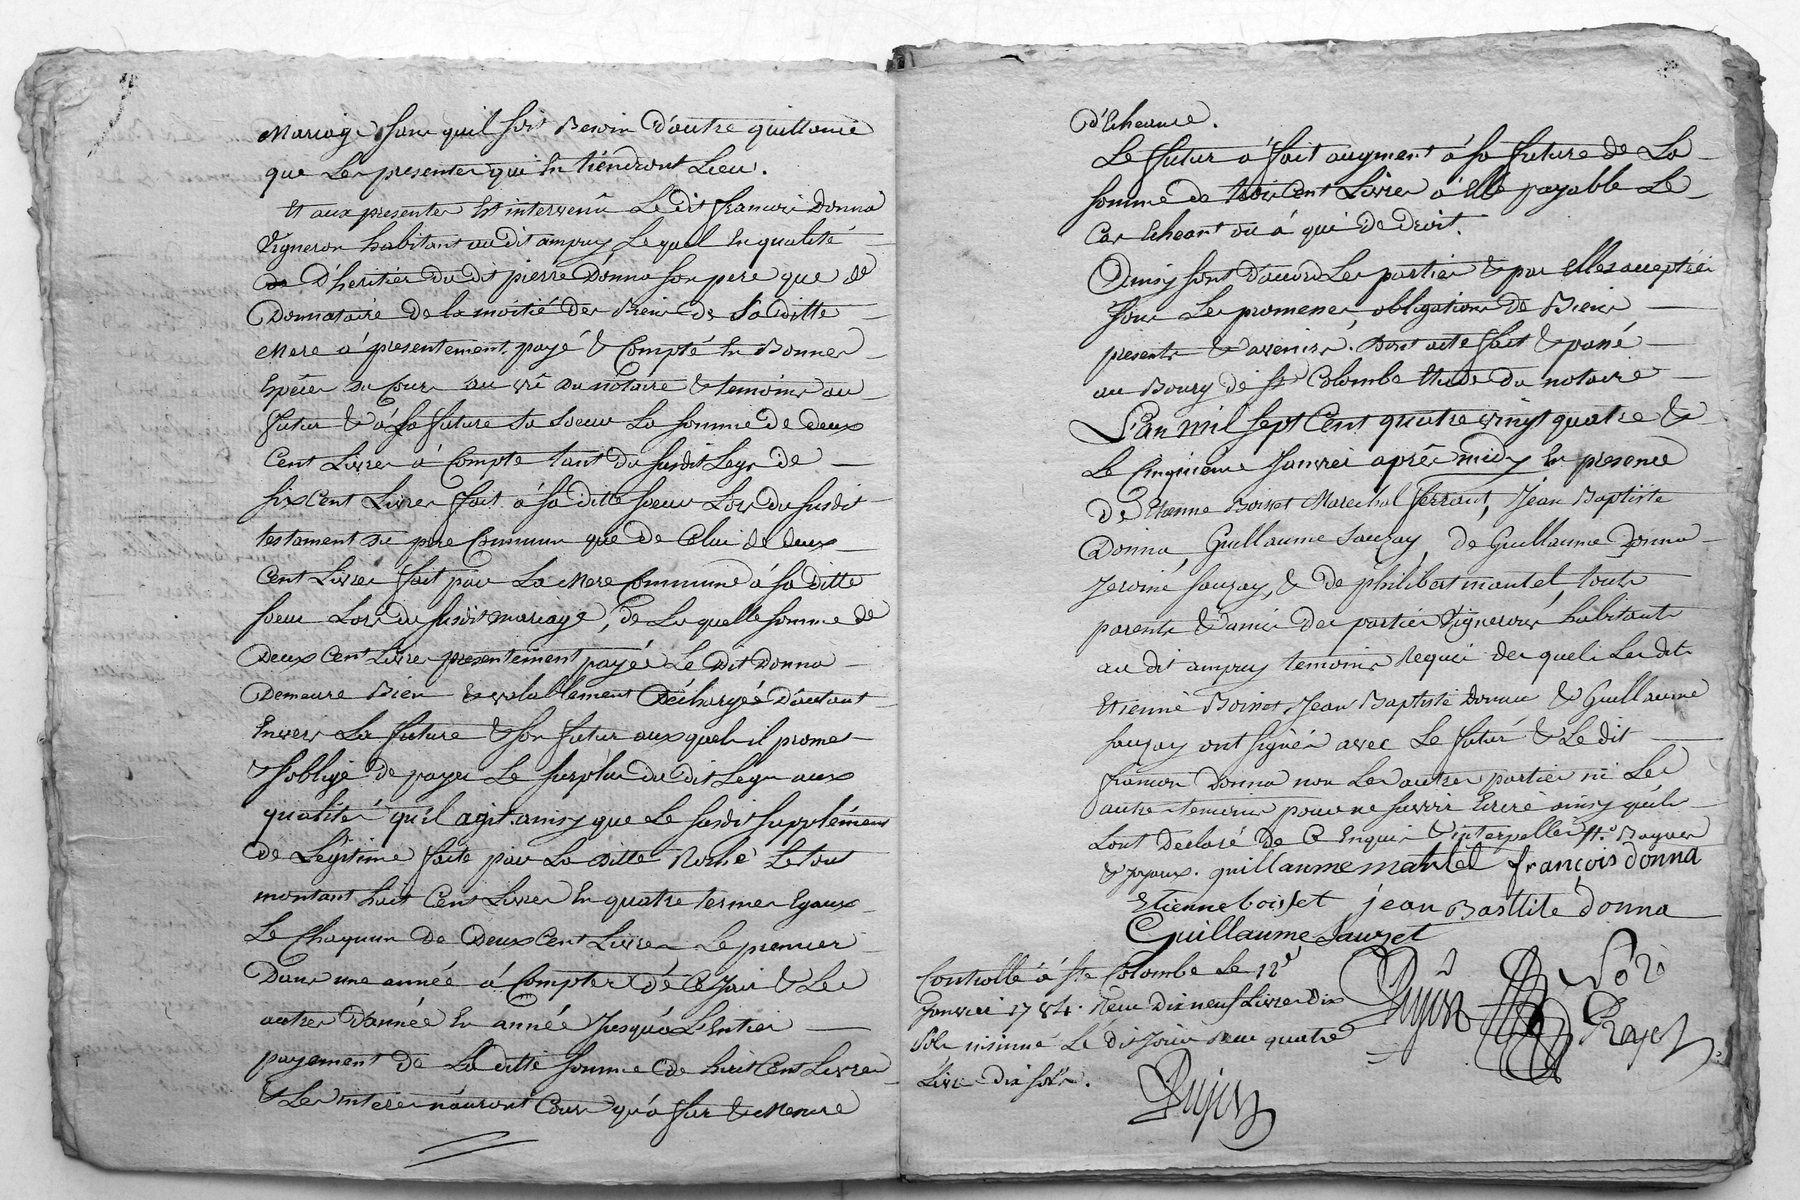 Mariage sans quil soit Besoin d'autre quittance
que Les presentes qui En tiendront Lieu.
Et aux presentes Est intervenû Le dit francois Donna
Vigneron habitant au dit ampuy Lequel En qualité
D'heritier du dit pierre Donna son pere que de
Donnataire de la moitié des Biens de Sa ditte
Mere a presentement payé & Compté En Bonnes
Espêces du Cours au vû du notaire & temoins au
futur & á sa future Sa Soeur La somme de deux
Cent Livres a Compte tant du susdit Legs de
six Cent Livres fait á sa ditte soeur Lors du susdit
testament du pere Commun que de Celui de deux
Cent Livres fait par La Mere Commune á sa ditte
soeur Lors du susdit mariage, de La quelle somme de
Deux Cent Livres presentement payée Le Dit Donna
Demeure Bien & valablement Déchargé D'autant
Envers La future & son futur aux quels il promet
& s'oblige de payer Le surplus du dit Legs aux
qualités qu'il agit ainsy que Le susdit supplément
de Légitime faite par La ditte Le tout
montant huit Cent Livres En quatre termes Egaux
Le Chaquun de Deux Cent Livres Le premier
Dans une année á Compter de Ce Jour & Les
autres d'année En année Jusqu'a L'Entier
payement de La ditte somme de huit Cent Livres
& Les interets n'auront Cours qu'á fur & Mesure
d'Echeance.
Le futur á fait augment á sa future de La
somme de trois Cent Livres á Elle payable Le
Cas Echeant ou á qui de droit.
Ainsy sont d'accord Les parties & par Elles accepté
sous Les promesses, obligations de Biens
presents & avenirs. Dont acte fait & passé
au Bourg de ste Colombe Etude du notaire
L'an mil sept Cent quatre vingt quatre &
Le Cinquieme Janvier aprês midy En presence
De Etienne Boisset Marechal ferrant, Jean Baptiste
Donna Guillaume Sauzay, de Guillaume Donna
Jerome sauzay, & de philibert mantel, touts
parents & amis des parties Vignerons habitants
au dit ampuy temoins Requis des quels Les dits
Etienne Boisset, Jean Baptiste Donna & Guillaume
sauzay ont signés avec Le futur & Le dit
francois Donna non Les autres parties ni Les
autres temoins pour ne savoir Ecrire ainsy qu'ils
L'ont Declaré de Ce Enquis & interpellés
& joyaux. guillaume mantel françois donna
Etienne boisset jean Basttite donna
Guillaume Sauzet
Controllé á ste Colombe Le 12e
Janvier 1784. Recu Dix neuf Livres Dix
Sols insinué Le dit Jour Recu quatre
Livre dix sols.
Dujon
Dujon